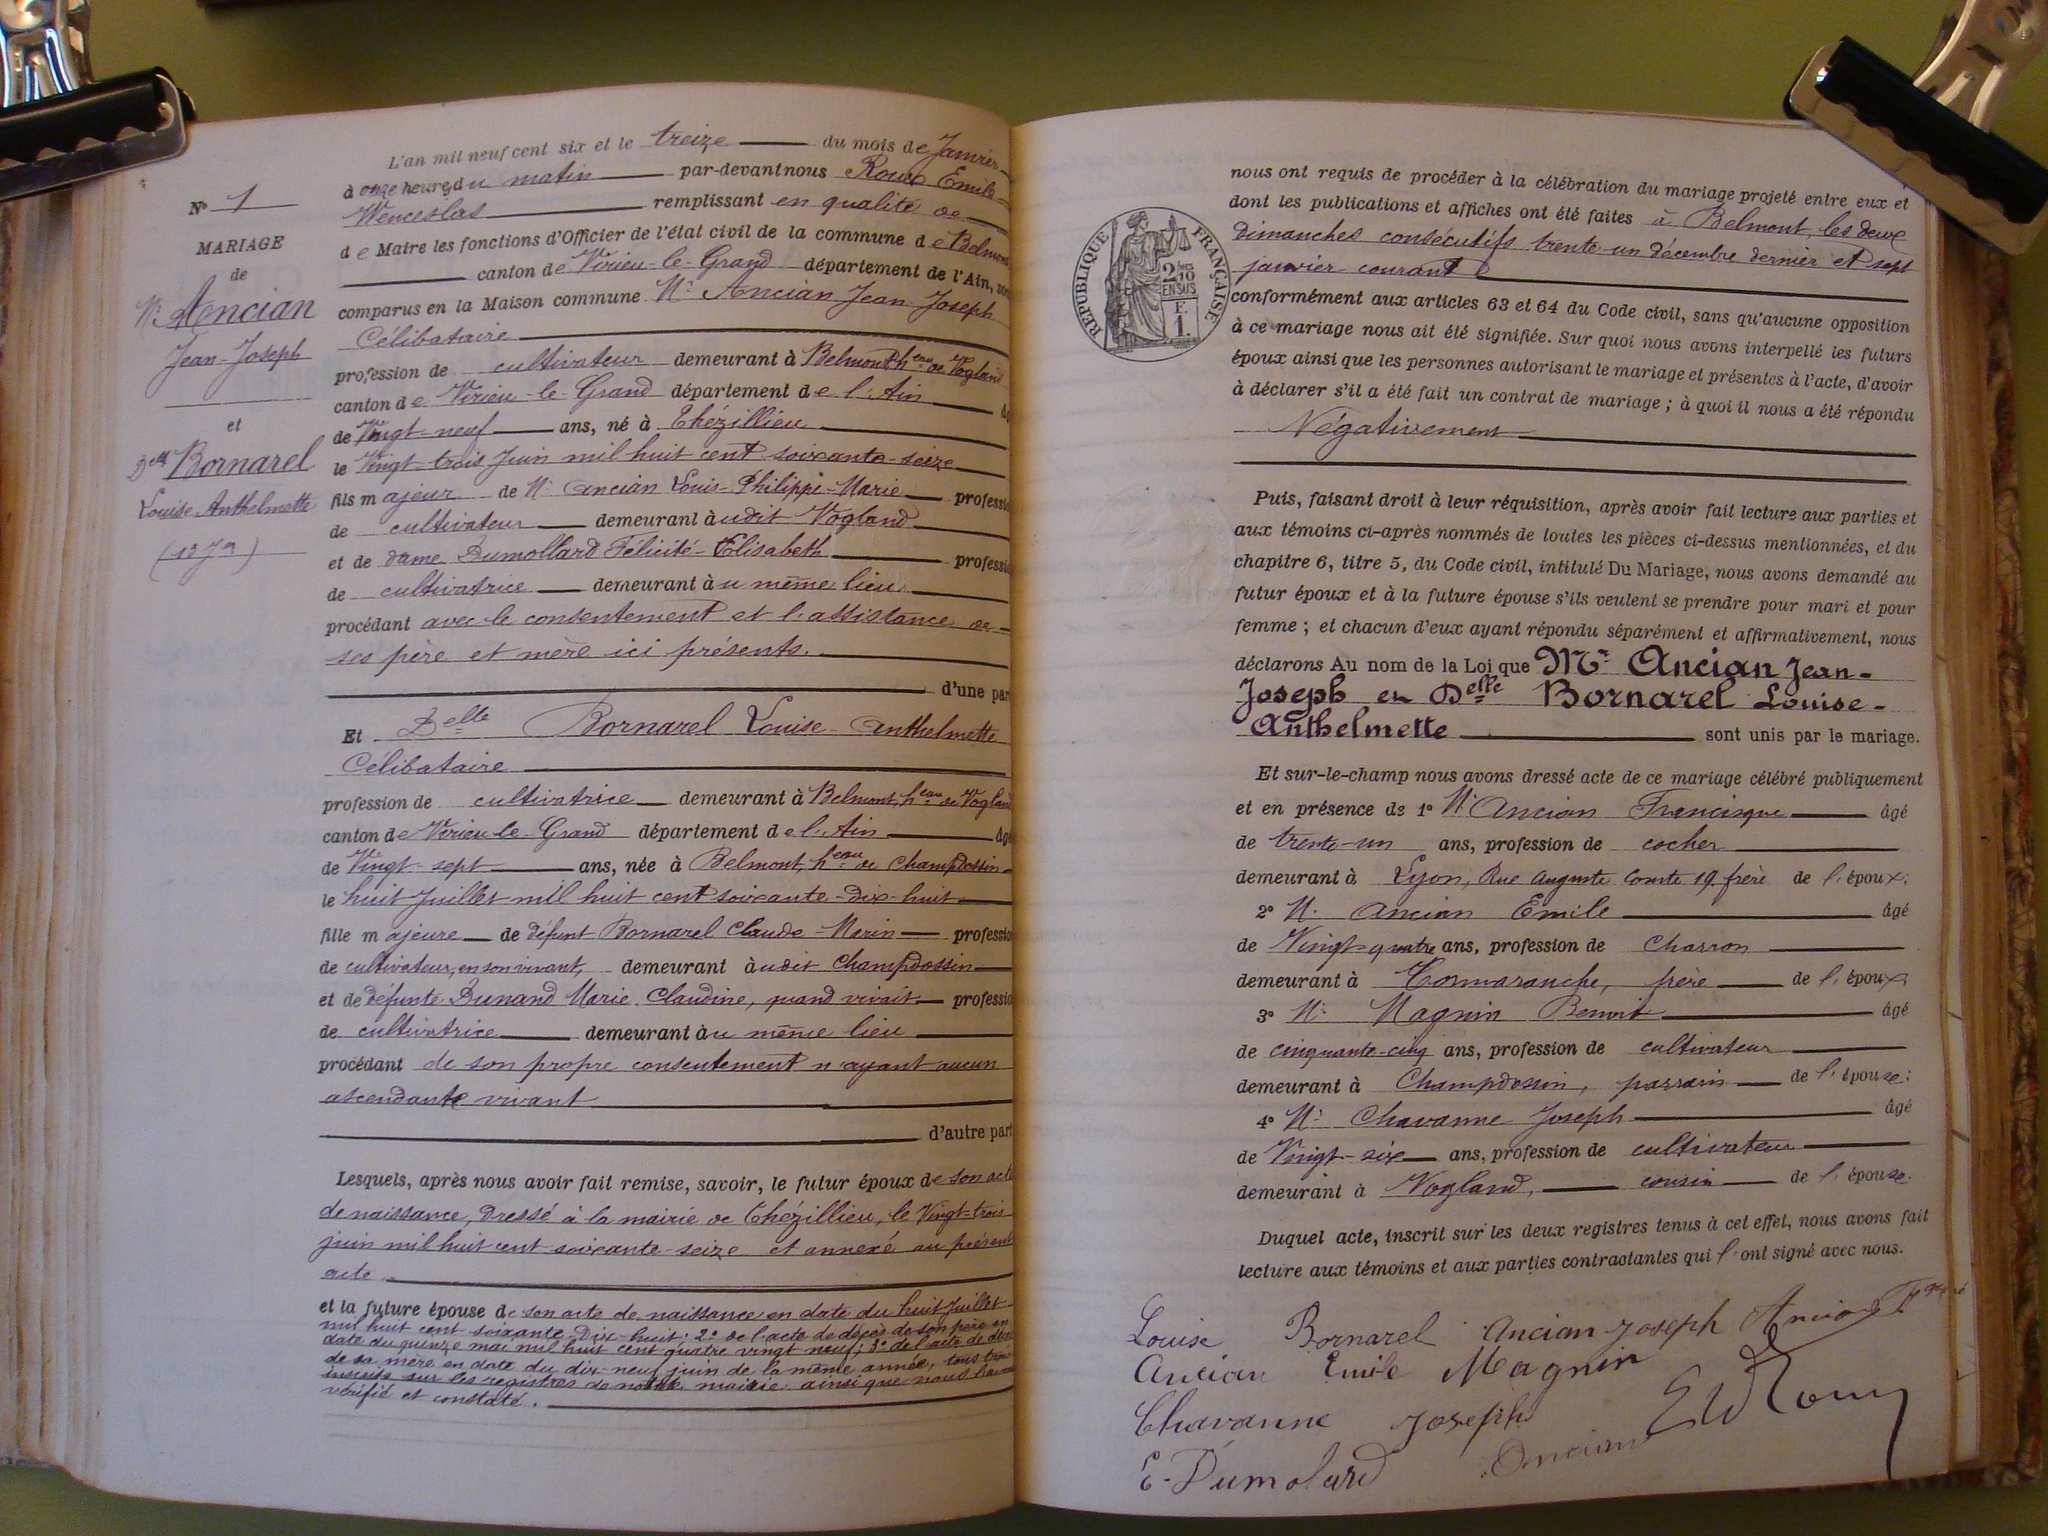 N° 1
MARIAGE
de
Mr Ancian
Jean-Joseph
et
Delle Bornarel
Louise-Anthelmette
L'an mil neuf cent six et le treize du mois de Janvier
à onze heures du matin par-devant nous Roux Emile-
Wenceslas remplissant en qualité de
de Maire les fonctions d'Officier de l'état civil de la commune de Belmont
canton de Virieu-le-Grand département de l'Ain, sont
comparus en la Maison commune Mr Ancian Jean-Joseph
Célibataire
profession de cultivateur demeurant à Belmont heau de Vogland
canton de Virieu-le-Grand département de l'Ain
de Vingt-neuf ans, né à Thézillieu
le Vingt-trois Juin mil huit cent soixante-seize
fils majeur de Mr Ancian Louis-Philippe-Marie profession
de cultivateur demeurant audit Vogland
et de dame Dumollard Félicité-Elisabeth profession
de cultivatrice demeurant au même lieu
procédant avec le consentement et l'assistance de
ses père et mère ici présents.
d'une part
Et Delle Bornarel Louise-Anthelmette
Célibataire
profession de cultivatrice demeurant à Belmont, heau de Vogland
canton de Virieu-le-Grand département de l'Ain âgé
de Vingt-sept ans, née à Belmont, heau de Champdossin
le huit Juillet mil huit cent soixante-dix-huit
fille majeure de défunt Bornarel Claude-Marin profession
de cultivateur, en son vivant, demeurant audit Champdossin
et de défunte Dunand Marie Claudine, quand vivait profession
de cultivatrice demeurant au même lieu
procédant de son propre consentement n'ayant aucun
ascendante vivant
d'autre part
Lesquels, après nous avoir fait remise, savoir, le futur époux de son acte
de naissance, dressé à la mairie de Thézillieu, le Vingt-trois
juin mil huit cent soixante-seize et annexé au présent
acte
et la future épouse de son acte de naissance en date du huit Juillet
mil huit cent soixante-dix-huit; 2° de l'acte de décès de son père en
date du quinze mai mil huit cent quatre vingt neuf; 3° de l'acte de décès
de sa mère en date du dix-neuf juin de la même année, tous trois
inscrits sur les registres de notre mairie ainsi que nous l'avons
vérifié et constaté.
nous ont requis de procéder à la célébration du mariage projeté entre eux et
dont les publications et affiches ont été faites à Belmont, les deux
dimanches consécutifs trente-un décembre dernier et sept
janvier courant
RÉPUBLIQUE FRANÇAISE
2/10 EN SUS
E
1.
conformément aux articles 63 et 64 du Code civil, sans qu'aucune opposition
à ce mariage nous ait été signifiée. Sur quoi nous avons interpellé les futurs
époux ainsi que les personnes autorisant le mariage et présentes à l'acte, d'avoir
à déclarer s'il a été fait un contrat de mariage; à quoi il nous a été répondu
Négativement
Puis, faisant droit à leur réquisition, après avoir fait lecture aux parties et
aux témoins ci-après nommés de toutes les pièces ci-dessus mentionnées, et du
chapitre 6, titre 5, du Code civil, intitulé Du Mariage, nous avons demandé au
futur époux et à la future épouse s'ils veulent se prendre pour mari et pour
femme; et chacun d'eux ayant répondu séparément et affirmativement, nous
déclarons Au nom de la Loi que Mr Ancian Jean-
Joseph et Delle Bornarel Louise-
Anthelmette sont unis par le mariage.
Et sur-le-champ nous avons dressé acte de ce mariage célébré publiquement
et en présence de 1° Mr Ancian Francisque âgé
de trente-un ans, profession de cocher
demeurant à Lyon, Rue Auguste Comte 19 frère de l'époux;
2° Mr Ancian Emile âgé
de Vingt-quatre ans, profession de charron
demeurant à Cormaranche, frère de l'époux;
3° Mr Magnin Benoit âgé
de cinquante-cinq ans, profession de cultivateur
demeurant à Champdossin, parrain de l'épouse;
4° Mr Chavanne Joseph âgé
de Vingt-six ans, profession de cultivateur
demeurant à Vogland, cousin de l'épouse.
Duquel acte, inscrit sur les deux registres tenus à cet effet, nous avons fait
lecture aux témoins et aux parties contractantes qui l'ont signé avec nous.
Louise Bornarel Ancian Joseph Ancian
Ancian Emile Magnin
Chavanne Joseph E W Roux
E. Dumolard Ancian